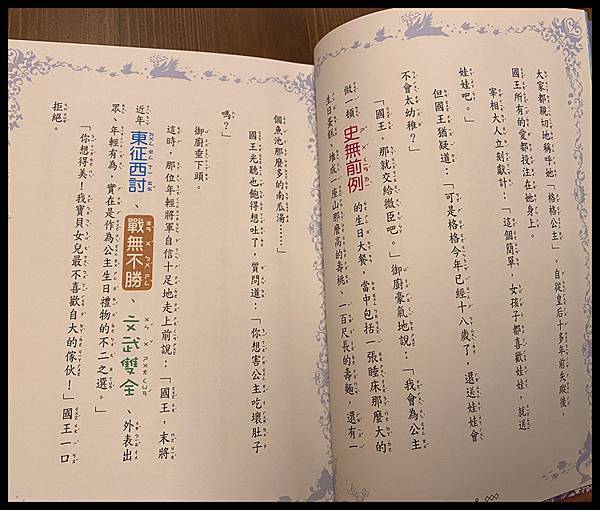 大家都親切地稱呼她「格格公主」。自從皇后十多年前失蹤後，
國王所有的愛都投注在她身上。
宰相大人立刻獻計：「這個簡單，女孩子都喜歡娃娃，就送
娃娃吧。」
但國王猶疑道：「可是格格今年已經十八歲了，還送娃娃會
不會太幼稚？」
「國王，那就交給微臣吧。」御廚豪氣地說，「我會為公主
做一頓史無前例的生日大餐，當中包括一張睡床那麼大的
生日蛋糕、堆成一座山那麼高的壽桃、一百尺長的壽麵，還有一
個魚池那麼多的南瓜湯……」
國王光聽也飽得想吐了，質問道：「你想害公主吃壞肚子
嗎？」
御廚垂下頭。
這時，那位年輕將軍自信十足地走上前說：「國王，末將
近年東征西討、戰無不勝、文武雙全、外表出
眾、年輕有為，實在是作為公主生日禮物的不二之選。」
「你想得美！我寶貝女兒最不喜歡自大的傢伙！」國王一口
拒絕。